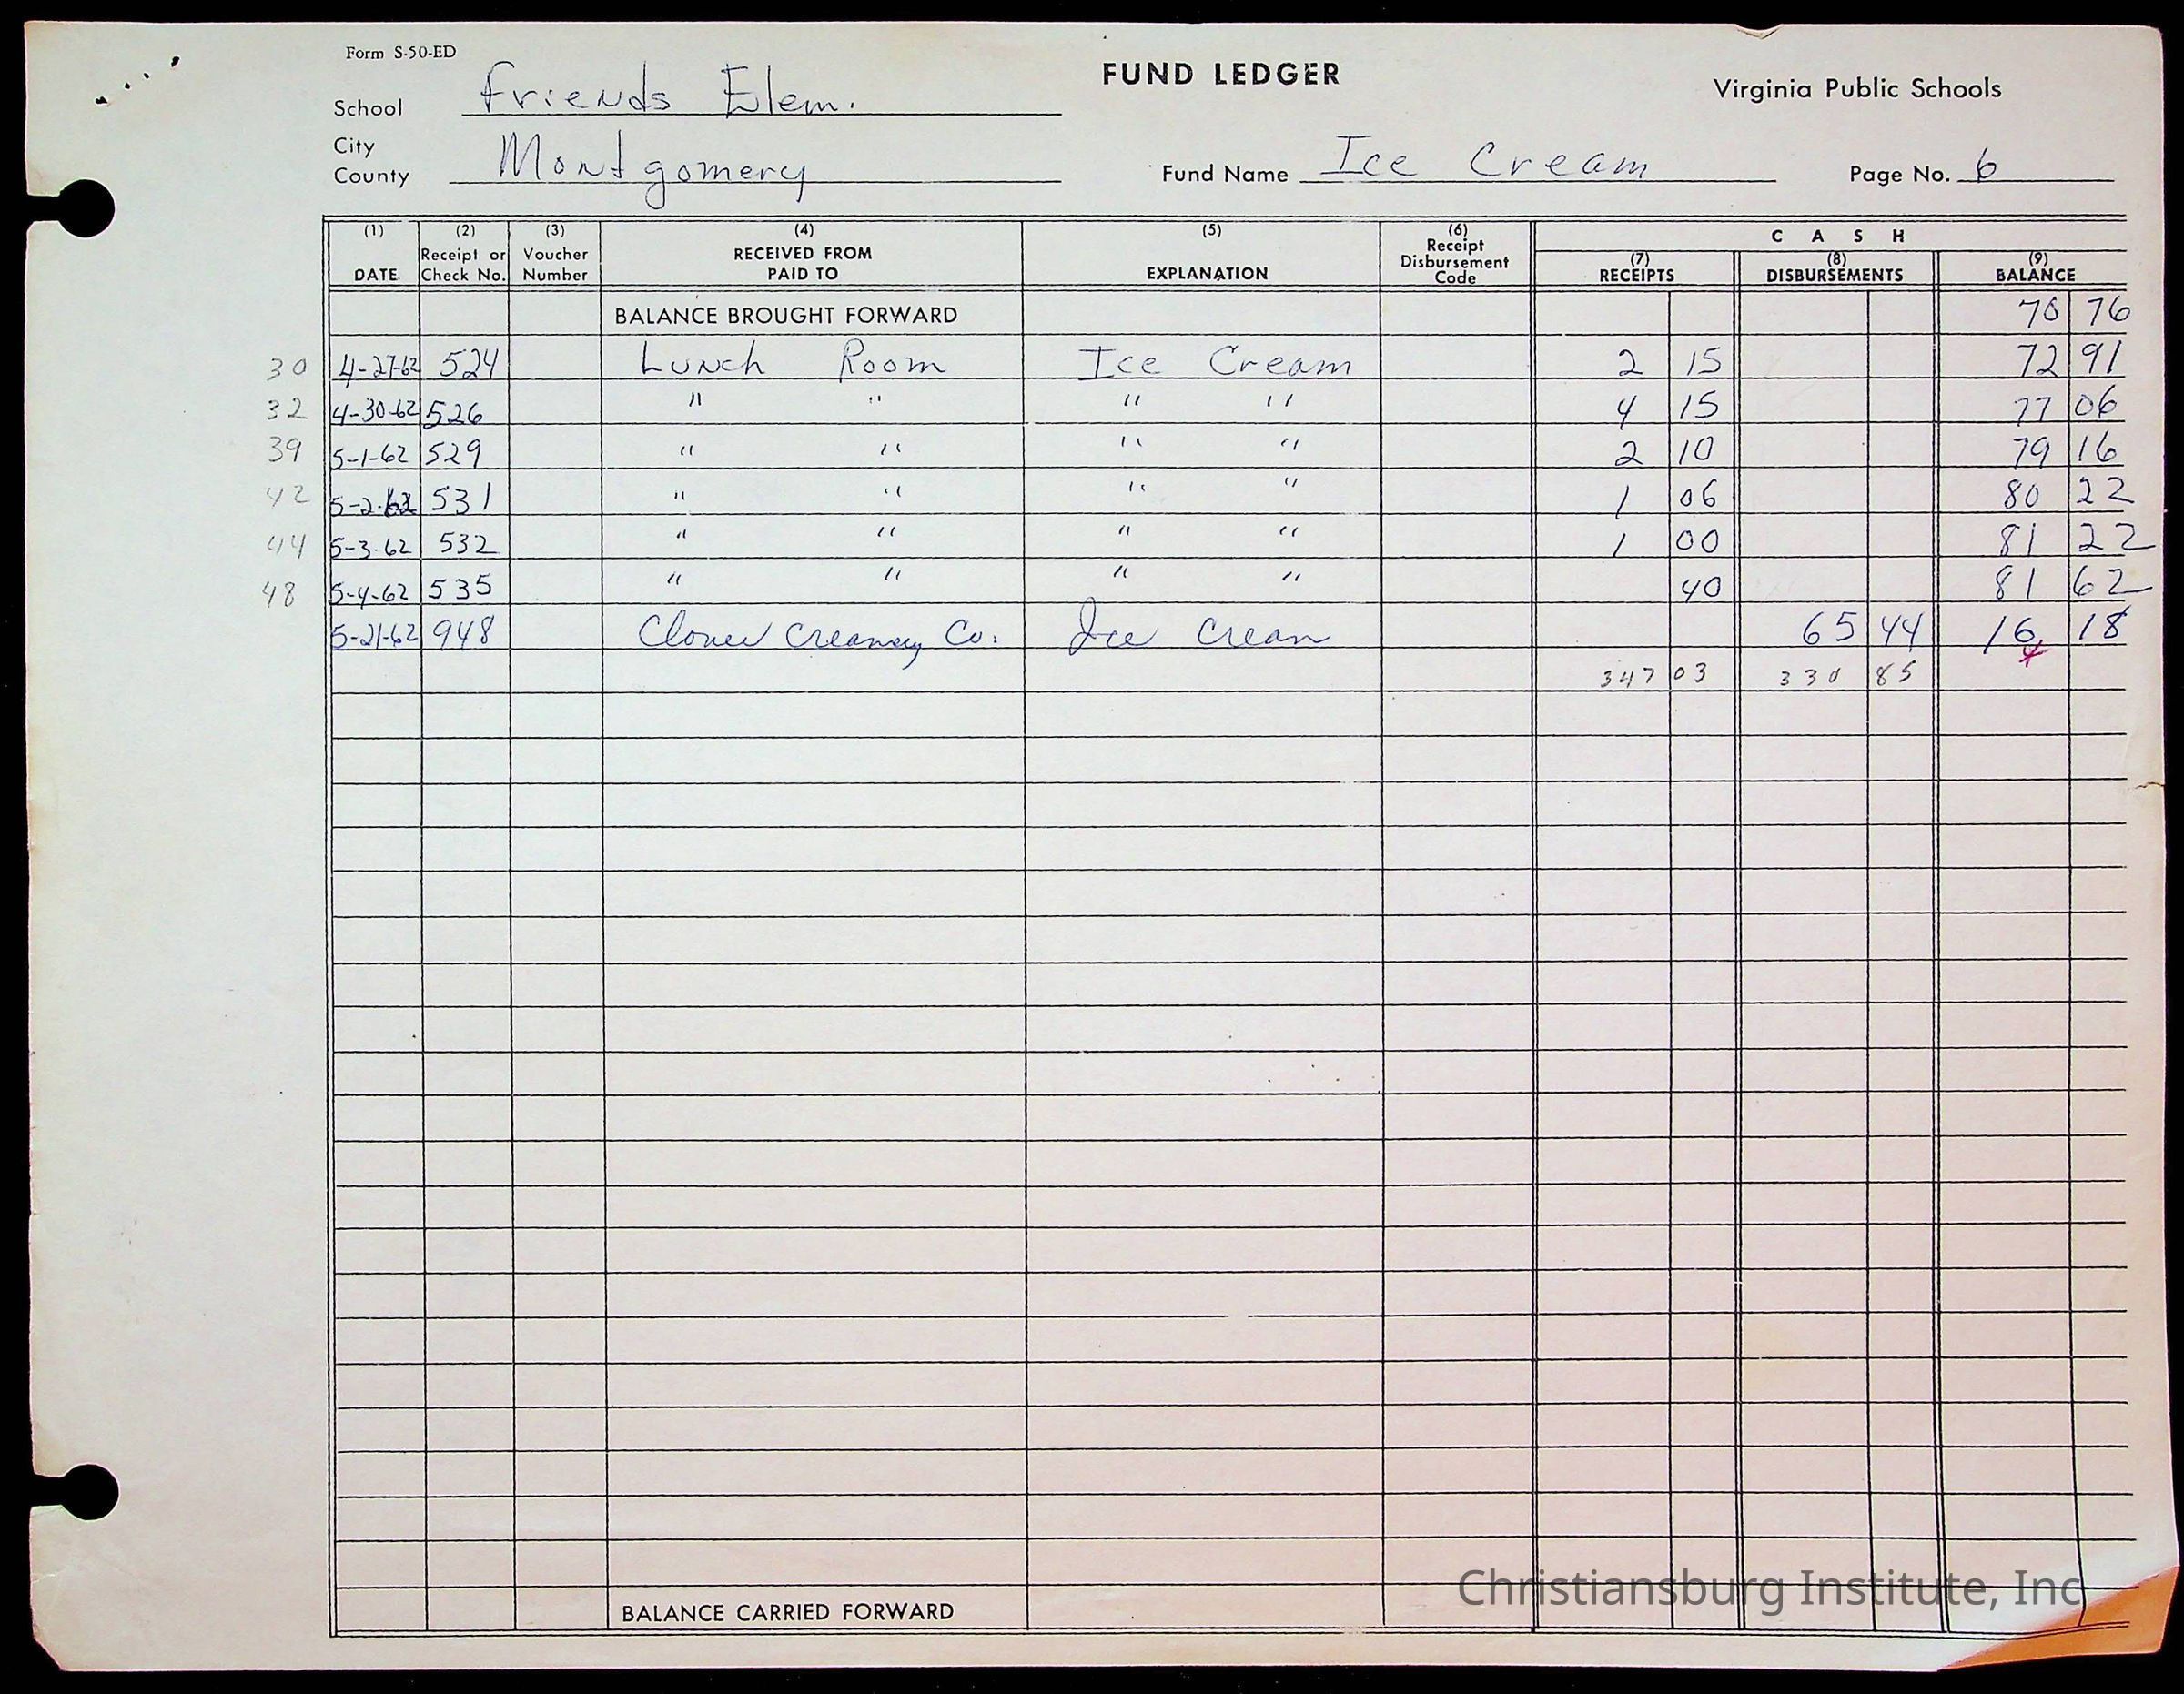 Form S-50-ED
FUND LEDGER
Virginia Public Schools
School Friends Elem.
City
County Montgomery
Fund Name Ice Cream
Page No. 6
(1) DATE
(2) Receipt or Check No.
(3) Voucher Number
(4) RECEIVED FROM PAID TO
(5) EXPLANATION
(6) Receipt Disbursement Code
CASH
(7) RECEIPTS
(8) DISBURSEMENTS
(9) BALANCE
BALANCE BROUGHT FORWARD 70 76
30 4-27-62 524 Lunch Room Ice Cream 2 15 72 91
32 4-30-62 526 " " " " 4 15 77 06
39 5-1-62 529 " " " " 2 10 79 16
42 5-2-62 531 " " " " 1 06 80 22
44 5-3-62 532 " " " " 1 00 81 22
48 5-4-62 535 " " " " 40 81 62
5-21-62 948 Clover Creamery Co. Ice Cream 65 44 16 18
347 03 330 85
BALANCE CARRIED FORWARD
Christiansburg Institute, Inc